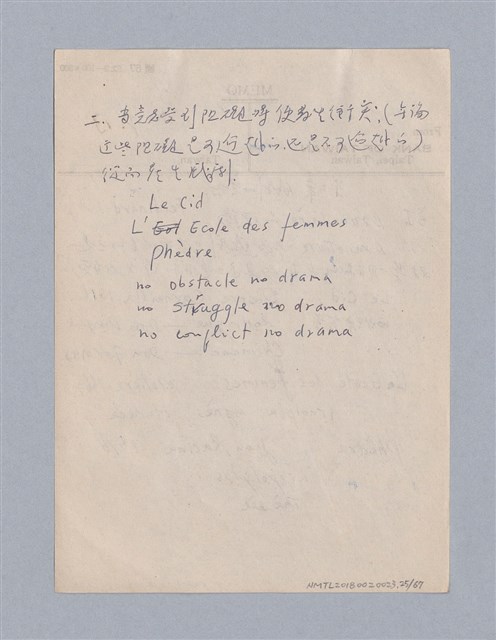 二、當意志受到阻礙時,便發生衝突,(無論
這些阻礙是可逾越的還是不可逾越的)
從而產生戲劇.
Le Cid
L' Ecole des femmes
Phèdre
no obstacle no drama
no struggle no drama
no conflict no drama
NMTL20180020023.25/67